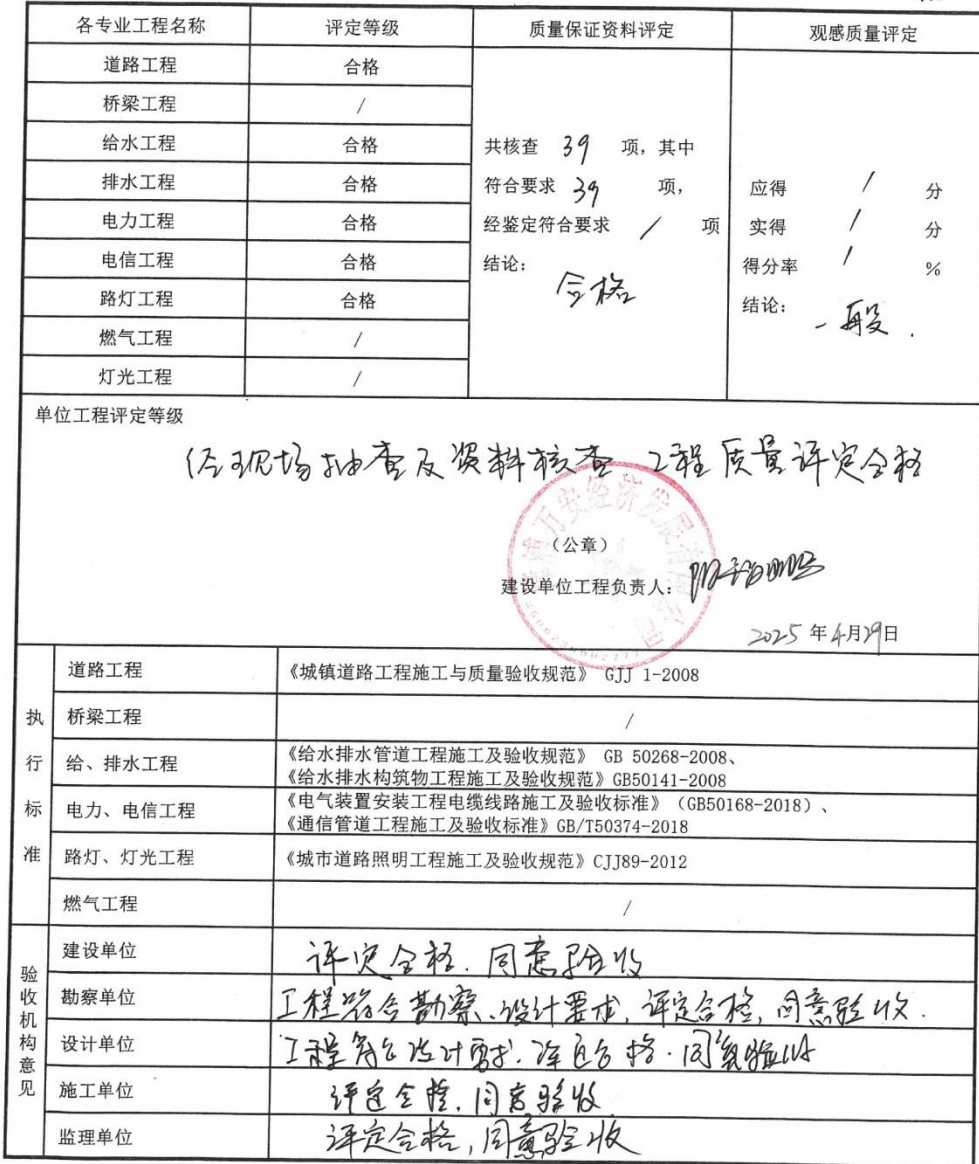 各专业工程名称 评定等级 质量保证资料评定 观感质量评定
道路工程 合格
桥梁工程 /
给水工程 合格
排水工程 合格
电力工程 合格
电信工程 合格
路灯工程 合格
燃气工程 /
灯光工程 /
共核查 39 项，其中
符合要求 39 项，
经鉴定符合要求 / 项
结论：
合格
应得 / 分
实得 / 分
得分率 / %
结论：
一般.
单位工程评定等级
经现场抽查及资料核查 工程质量评定合格
万安经济发展有限公司
（公章）
建设单位工程负责人：
2025 年4月29日
执行标准
道路工程 《城镇道路工程施工与质量验收规范》 GJJ 1-2008
桥梁工程 /
给、排水工程 《给水排水管道工程施工及验收规范》 GB 50268-2008、
《给水排水构筑物工程施工及验收规范》GB50141-2008
电力、电信工程 《电气装置安装工程电缆线路施工及验收标准》（GB50168-2018）、
《通信管道工程施工及验收标准》GB/T50374-2018
路灯、灯光工程 《城市道路照明工程施工及验收规范》CJJ89-2012
燃气工程 /
验收机构意见
建设单位 评定合格.同意验收
勘察单位 工程符合勘察、设计要求,评定合格,同意验收.
设计单位 工程符合设计要求.评定合格.同意验收
施工单位 评定合格.同意验收
监理单位 评定合格,同意验收